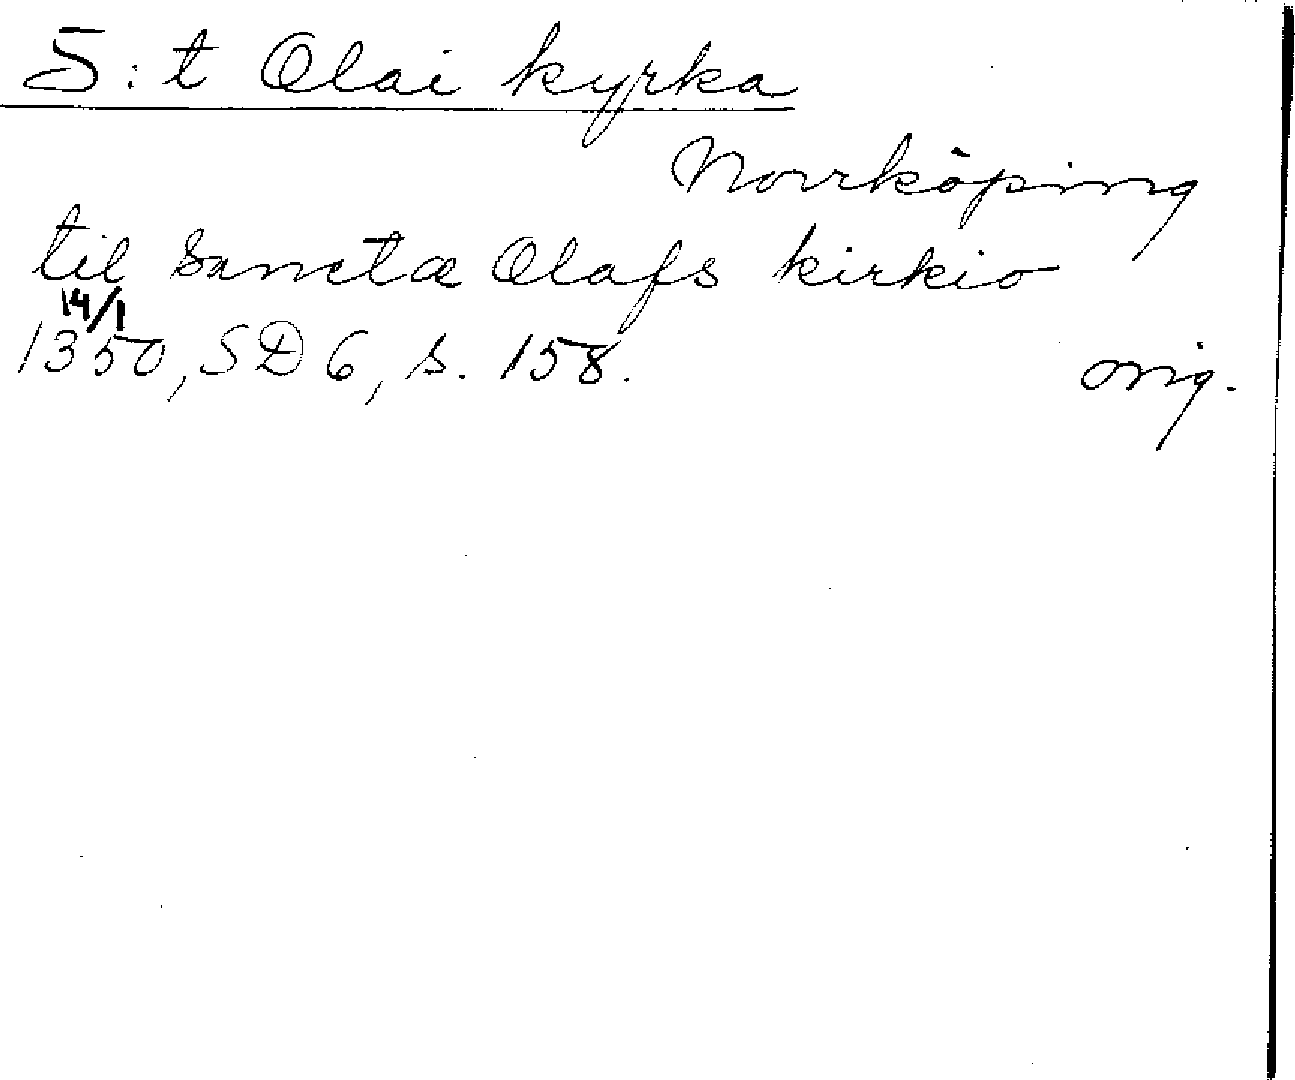 S:t Olai kyrka
Norrköping
til sanctæ Olafs kirkio
14/1
1350, SD 6, s. 158. orig.